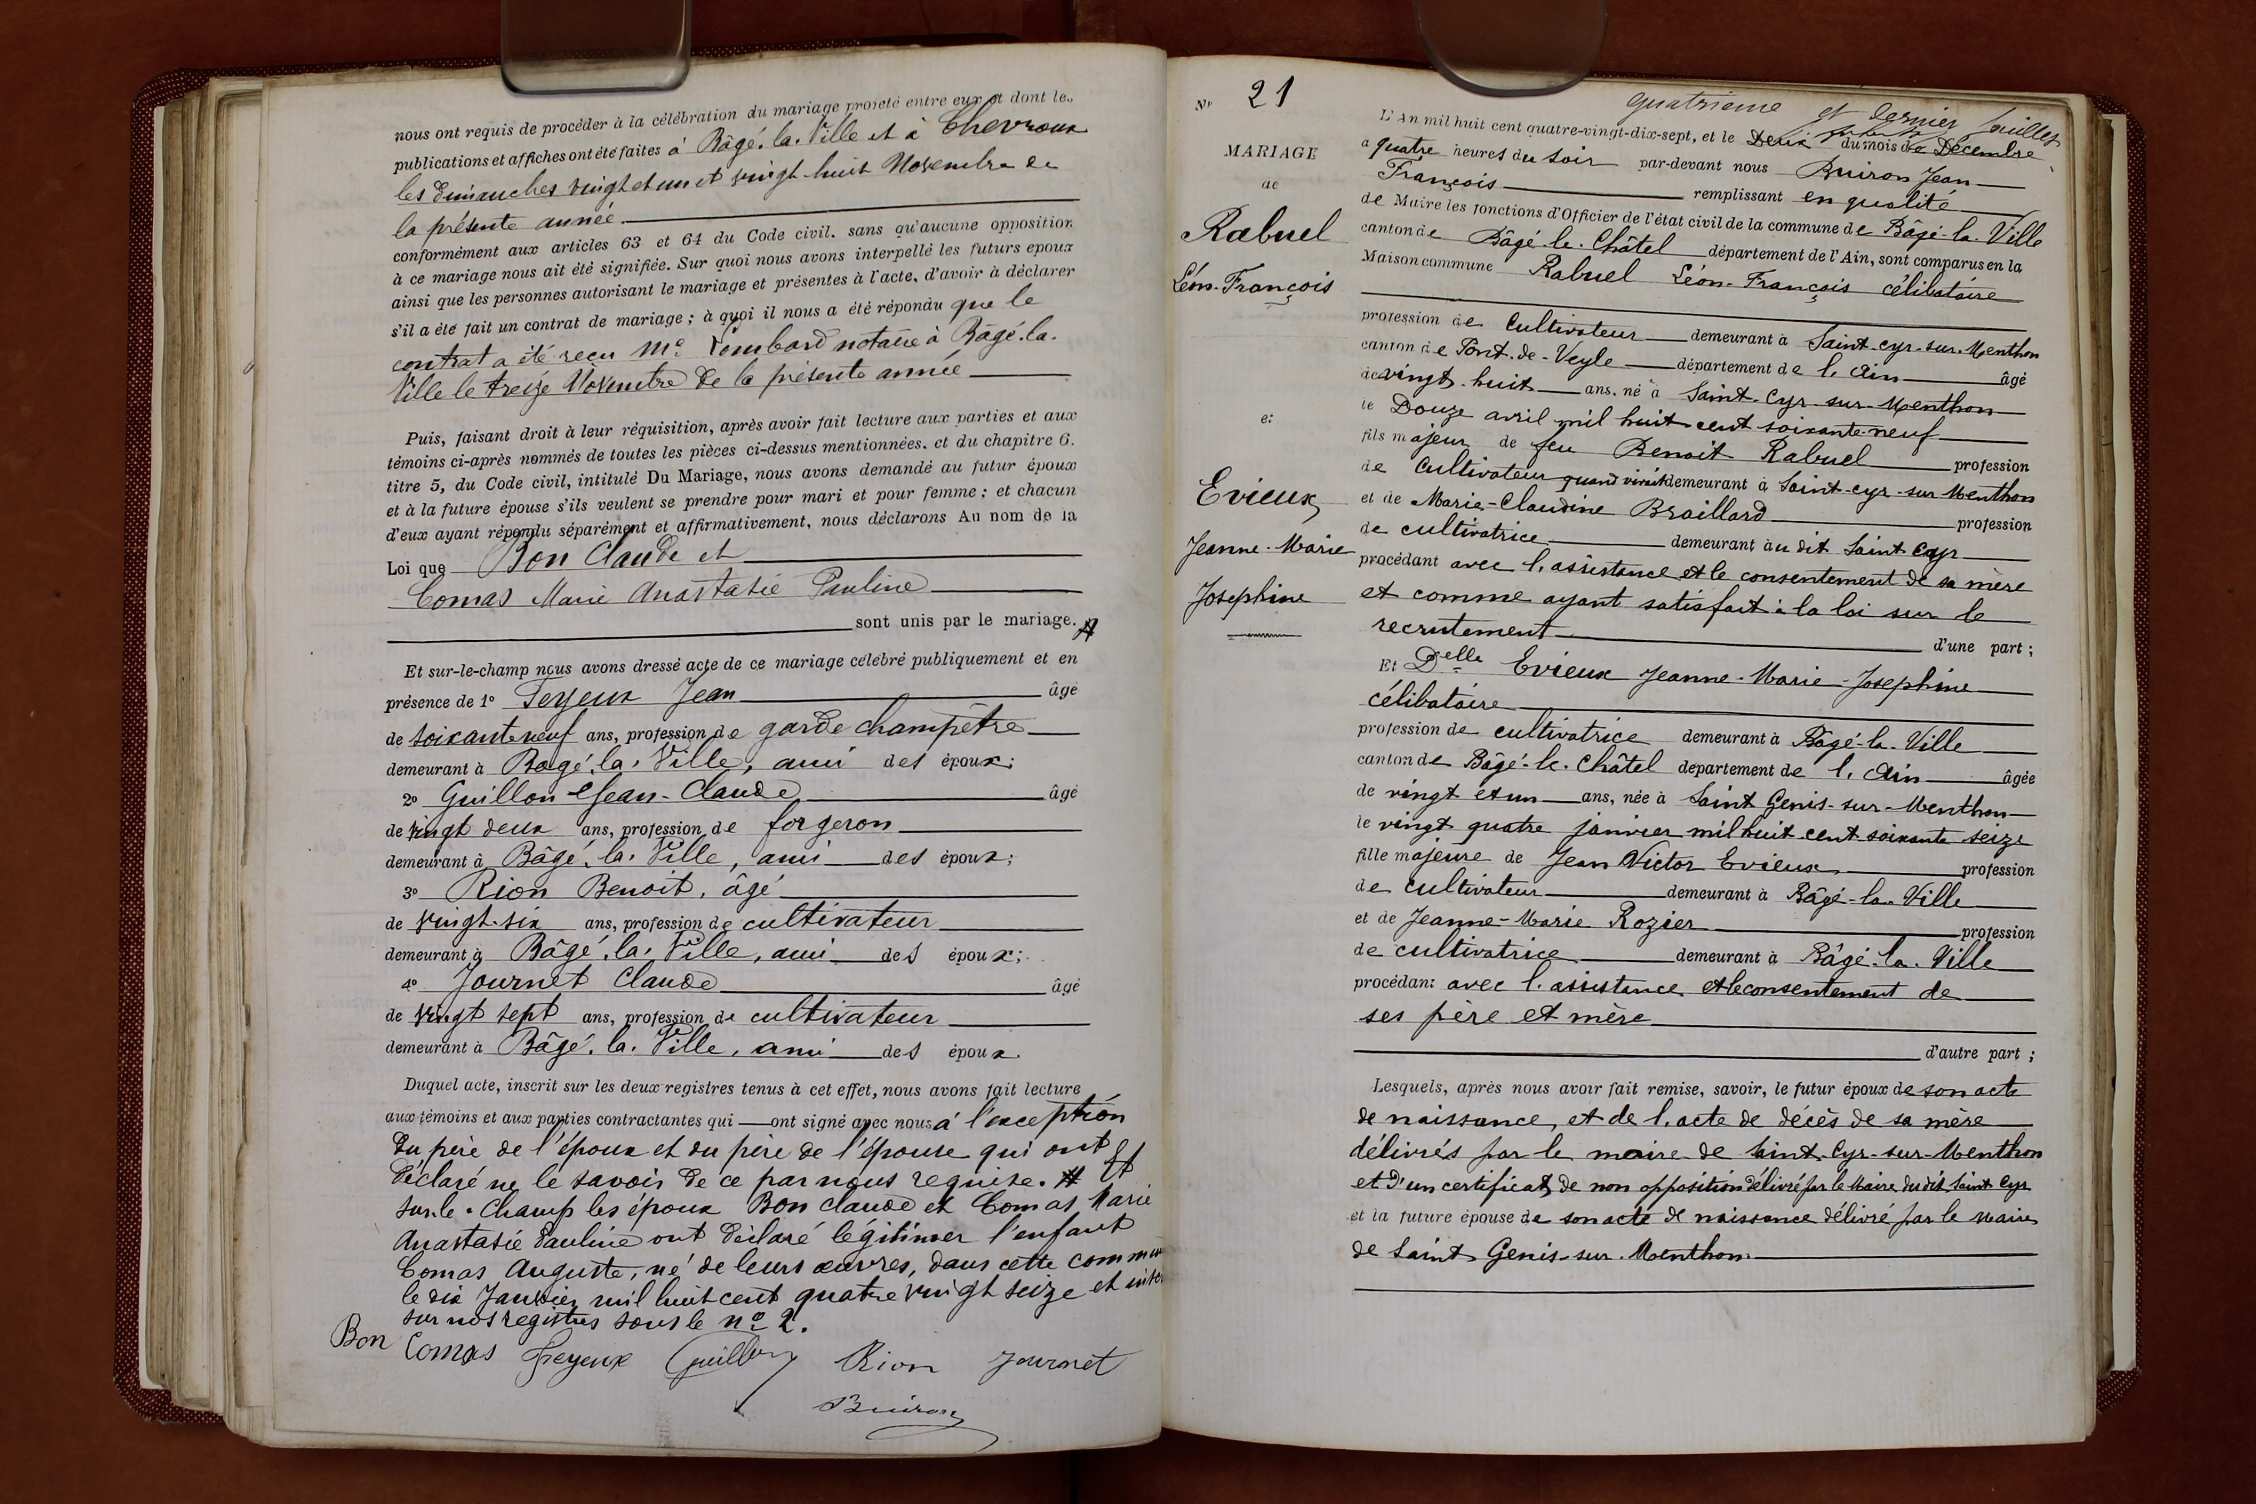 nous ont requis de procéder à la célébration du mariage projeté entre eux et dont les
publications et affiches ont été faites à Bâgé-la-Ville et à Chevroux
les dimanches vingt et un et vingt-huit Novembre de
la présente année
conformément aux articles 63 et 64 du Code civil, sans qu'aucune opposition
à ce mariage nous ait été signifiée. Sur quoi nous avons interpellé les futurs époux
ainsi que les personnes autorisant le mariage et présentes à l'acte, d'avoir à déclarer
s'il a été fait un contrat de mariage; à quoi il nous a été répondu que le
contrat a été reçu Me Lombard notaire à Bâgé-la-
Ville le treize Novembre de la présente année
Puis, faisant droit à leur réquisition, après avoir fait lecture aux parties et aux
témoins ci-après nommés de toutes les pièces ci-dessus mentionnées, et du chapitre 6,
titre 5, du Code civil, intitulé Du Mariage, nous avons demandé au futur époux
et à la future épouse s'ils veulent se prendre pour mari et pour femme; et chacun
d'eux ayant répondu séparément et affirmativement, nous déclarons Au nom de la
Loi que Bon Claude et
Comas Marie Anastasie Pauline
sont unis par le mariage. #
Et sur-le-champ nous avons dressé acte de ce mariage célébré publiquement et en
présence de 1° Feyeux Jean âgé
de soixante neuf ans, profession de garde champêtre
demeurant à Bâgé-la-Ville, ami des époux;
2° Guillon Jean-Claude âgé
de vingt deux ans, profession de forgeron
demeurant à Bâgé-la-Ville, ami des époux;
3° Rion Benoit, âgé
de vingt-six ans, profession de cultivateur
demeurant à Bâgé-la-Ville, ami des époux;
4° Journet Claude âgé
de vingt sept ans, profession de cultivateur
demeurant à Bâgé-la-Ville, ami des époux.
Duquel acte, inscrit sur les deux registres tenus à cet effet, nous avons fait lecture
aux témoins et aux parties contractantes qui ont signé avec nous à l'exception
du père de l'époux et du père de l'épouse qui ont
déclaré ne le savoir de ce par nous requise. # Et
sur-le-champ les époux Bon Claude et Comas Marie
Anastasie Pauline ont déclaré légitimer l'enfant
Comas Auguste, né de leurs œuvres, dans cette commune
le dix Janvier mil huit cent quatre vingt seize et
sur nos registres sous le n° 2.
Bon Comas Feyeux Guillon Rion Journet
Buiron
N° 21
MARIAGE
de
Rabuel
Léon-François
et
Evieux
Jeanne-Marie
Josephine
quatrieme et dernier feuillet
L'An mil huit cent quatre-vingt-dix-sept, et le Deux du mois de Décembre
à quatre heures du soir par-devant nous Buiron Jean
François remplissant en qualité
de Maire les fonctions d'Officier de l'état civil de la commune de Bâgé-la-Ville
canton de Bâgé-le-Châtel département de l'Ain, sont comparus en la
Maison commune Rabuel Léon-François célibataire
profession de Cultivateur demeurant à Saint-Cyr-sur-Menthon
canton de Pont-de-Veyle département de l'Ain âgé
de vingt-huit ans, né à Saint-Cyr-sur-Menthon
le Douze avril mil huit cent soixante-neuf
fils majeur de feu Benoit Rabuel profession
de Cultivateur quand vivait demeurant à Saint-Cyr-sur-Menthon
et de Marie-Claudine Braillard profession
de cultivatrice demeurant au dit Saint Cyr
procédant avec l'assistance et le consentement de sa mère
et comme ayant satisfait à la loi sur le
recrutement d'une part;
Et Delle Evieux Jeanne-Marie-Josephine
célibataire
profession de cultivatrice demeurant à Bâgé-la-Ville
canton de Bâgé-le-Châtel département de l'Ain âgée
de vingt et un ans, née à Saint Genis-sur-Menthon
le vingt quatre janvier mil huit cent soixante seize
fille majeure de Jean Victor Evieux profession
de cultivateur demeurant à Bâgé-la-Ville
et de Jeanne-Marie Rozier profession
de cultivatrice demeurant à Bâgé-la-Ville
procédant avec l'assistance et le consentement de
ses père et mère
d'autre part;
Lesquels, après nous avoir fait remise, savoir, le futur époux de son acte
de naissance, et de l'acte de décès de sa mère
délivrés par le maire de Saint-Cyr-sur-Menthon
et d'un certificat de non opposition délivré par le Maire du dit Saint Cyr
et la future épouse de son acte de naissance délivré par le Maire
de Saint Genis-sur-Menthon